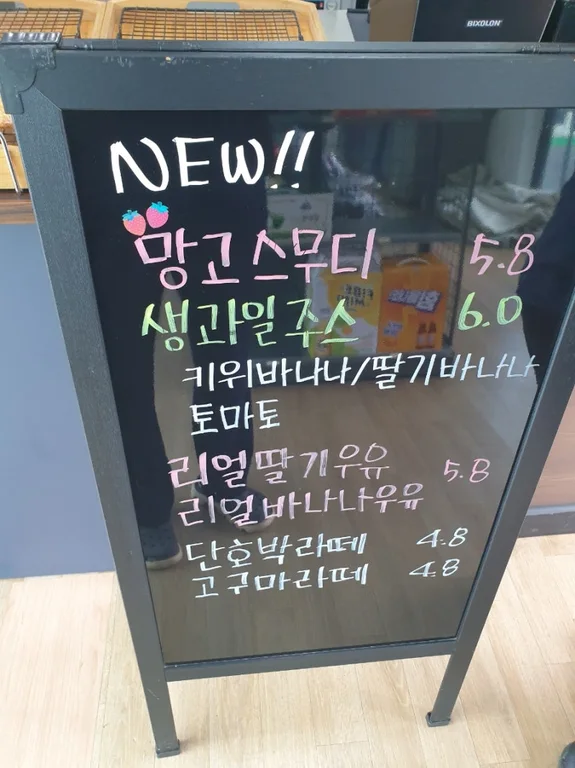 BIXOLON
NEW!!
망고스무디 5.8
생과일주스 6.0
키위바나나/딸기바나나
토마토
리얼딸기우유 5.8
리얼바나나우유
단호박라떼 4.8
고구마라떼 4.8